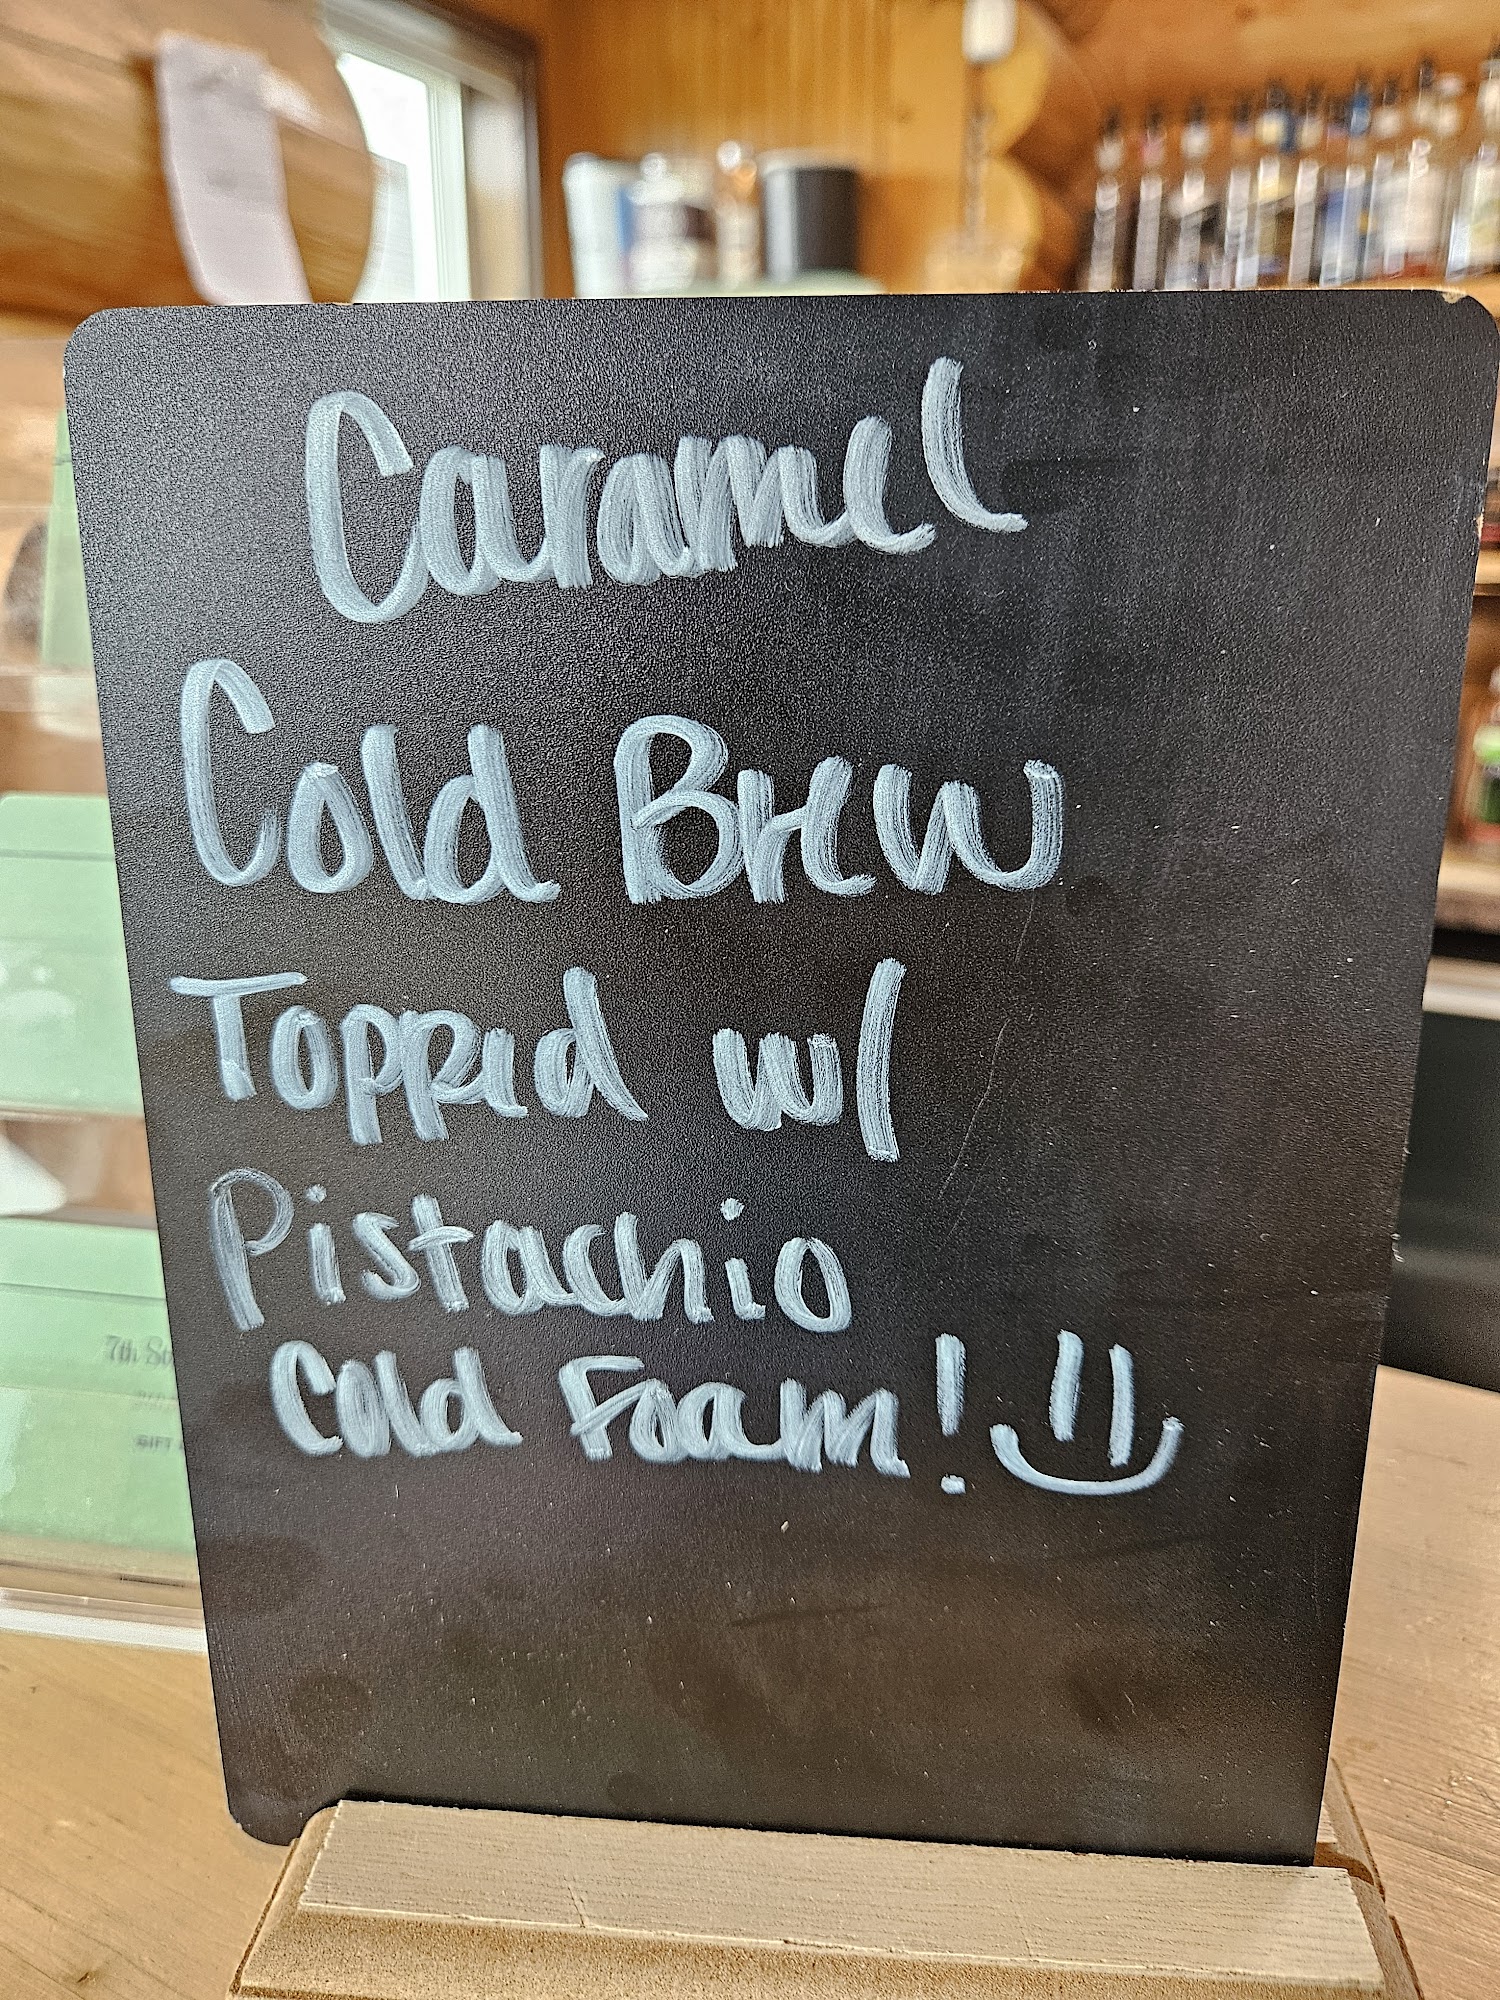 Caramel
Cold Brew
Topped w/
Pistachio
Cold Foam! :)
7th
GIFT